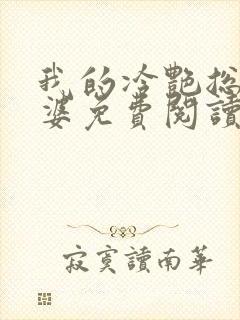 我的冷艷总
婆免費閱讀
寂寞讀南華